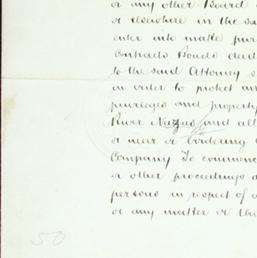 or any other Board
or elsewhere in the sa
enter into make pur
Contracts Bonds deed
to the said Attorney s
in order to protect an
privileges and property
River Nazas and all
or near or bordering
Company To commence
or other proceedings a
persons in respect of a
or any matter or thi
50